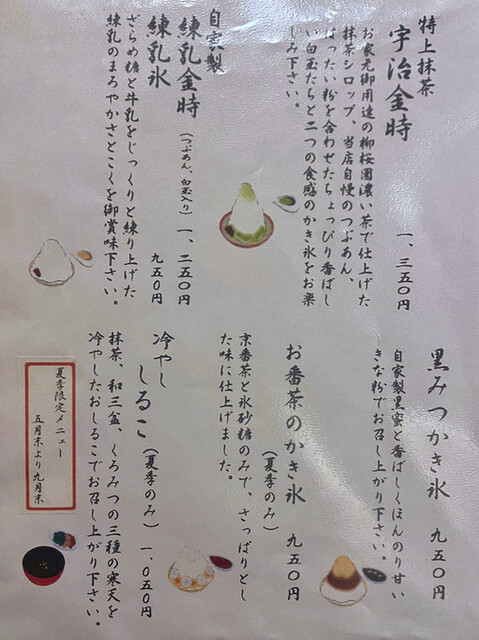 特上抹茶
宇治金時
一、三五〇円
お家元御用達の柳桜園濃い茶で仕上げた
抹茶シロップ、当店自慢のつぶあん、
はったい粉を合わせたちょっぴり香ばし
い白玉たちと二つの食感のかき氷をお楽
しみ下さい。
自家製
練乳金時
(つぶあん、白玉入り)
一、二五〇円
練乳氷
九五〇円
ざらめ糖と牛乳をじっくりと練り上げた
練乳のまろやかさとこくを御賞味下さい。
黒みつかき氷
九五〇円
自家製黒蜜と香ばしくほんのり甘い
きな粉でお召し上がり下さい。
お番茶のかき氷
(夏季のみ)
九五〇円
京番茶と氷砂糖のみで、さっぱりとし
た味に仕上げました。
冷やし
しるこ
(夏季のみ)
一、〇五〇円
抹茶、和三盆、くろみつの三種の寒天を
冷やしたおしるこでお召し上がり下さい。
夏季限定メニュー
五月末より九月末